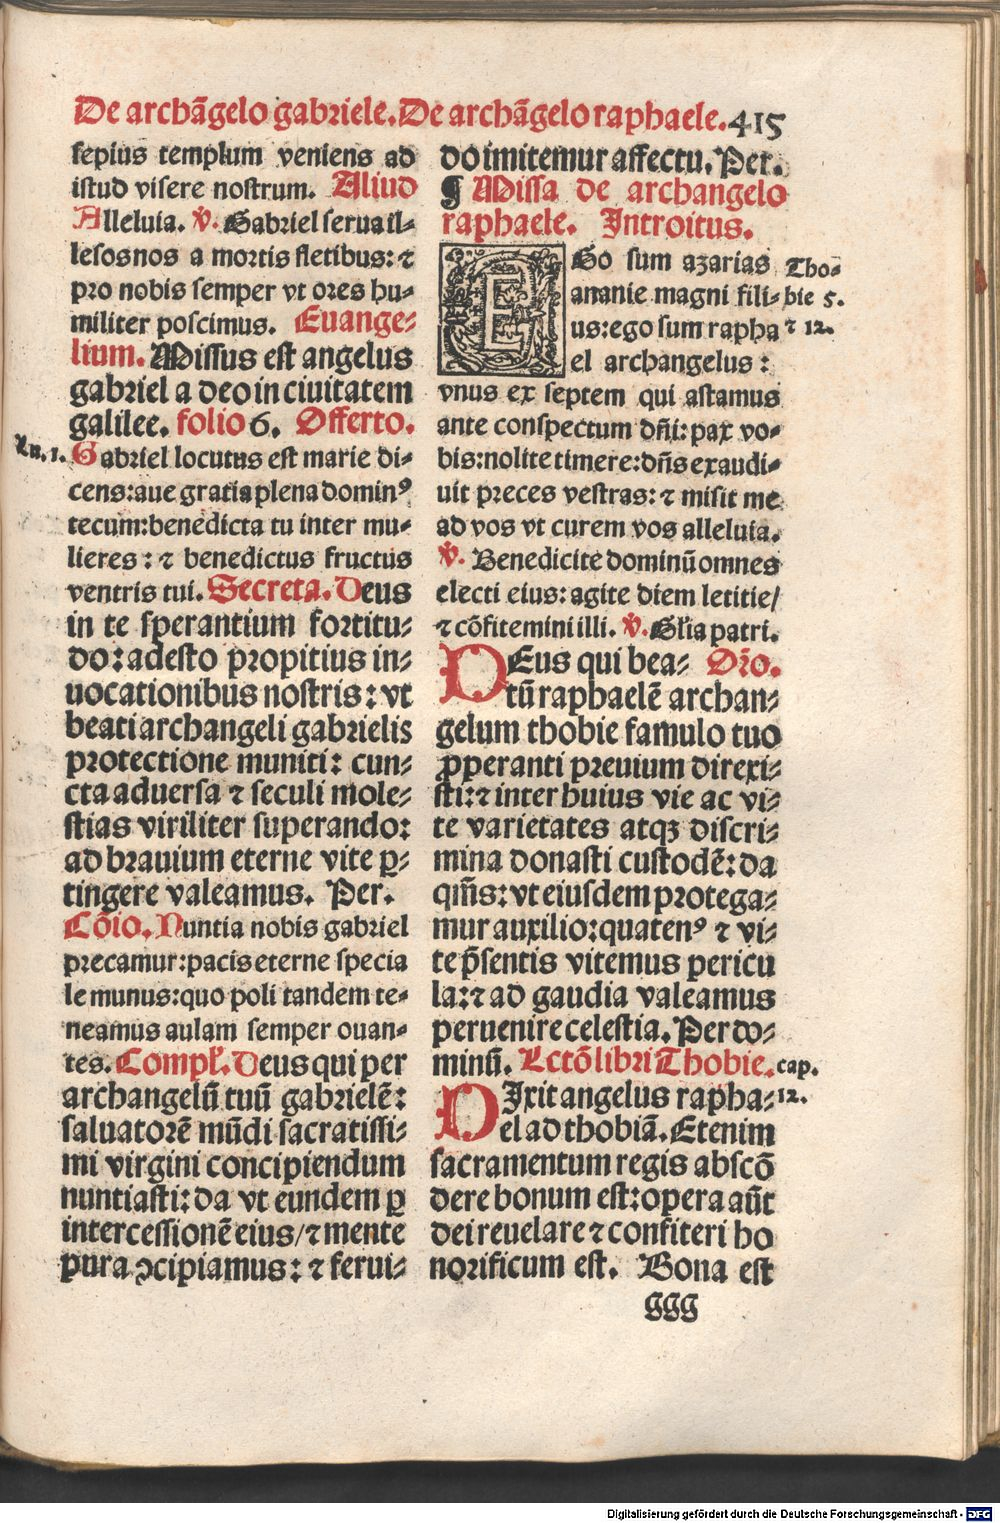 De archãgelo gabriele. De archãgelo raphaele. 415
sepius templum veniens ad
istud visere nostrum. Aliud
Alleluia. ℣. Gabriel serua il⸗
lesos nos a mortis fletibus: ⁊
pro nobis semper vt ores hu⸗
militer poscimus. Euange⸗
lium. Missus est angelus
gabriel a deo in ciuitatem
galilee. folio 6. Offerto.
Lu. 1.
Gabriel locutus est marie di⸗
cens: aue gratia plena dominꝰ
tecum: benedicta tu inter mu⸗
lieres: ⁊ benedictus fructus
ventris tui. Secreta. Deus
in te sperantium fortitu⸗
do: adesto propitius in⸗
uocationibus nostris: vt
beati archangeli gabrielis
protectione muniti: cun⸗
cta aduersa ⁊ seculi mole⸗
stias viriliter superando:
ad brauium eterne vite ꝑ⸗
tingere valeamus. Per.
Cõio. Nuntia nobis gabriel
precamur: pacis eterne specia
le munus: quo poli tandem te⸗
neamus aulam semper ouan⸗
tes. Compl̃. Deus qui per
archangelũ tuũ gabrielẽ:
saluatorẽ mũdi sacratissi⸗
mi virgini concipiendum
nuntiasti: da vt eundem ꝑ
intercessionẽ eius/ ⁊ mente
pura ↄcipiamus: ⁊ ferui⸗
do imitemur affectu. Per.
¶ Missa de archangelo
raphaele. Introitus.
EGo sum azarias
ananie magni fili⸗
us: ego sum rapha
el archangelus:
Tho⸗
bie 5.
⁊ 12.
vnus ex septem qui astamus
ante conspectum dñi: pax vo⸗
bis: nolite timere: dñs exaudi⸗
uit preces vestras: ⁊ misit me
ad vos vt curem vos alleluia.
℣. Benedicite dominũ omnes
electi eius: agite diem letitie/
⁊ cõfitemini illi. ℣. Gl̃ia patri.
DEus qui bea⸗ Oro.
tũ raphaelẽ archan⸗
gelum thobie famulo tuo
ꝓperanti preuium direxi⸗
sti: ⁊ inter huius vie ac vi⸗
te varietates atqꝫ discri⸗
mina donasti custodẽ: da
qm̃s: vt eiusdem protega⸗
mur auxilio: quatenꝰ ⁊ vi⸗
te p̃sentis vitemus pericu
la: ⁊ ad gaudia valeamus
peruenire celestia. Per do⸗
minũ. Lectõ libri Thobie. cap.
12.
DIxit angelus rapha⸗
el ad thobiã. Etenim
sacramentum regis abscõ
dere bonum est: opera aũt
dei reuelare ⁊ confiteri ho
norificum est. Bona est
ggg
Digitalisierung gefördert durch die Deutsche Forschungsgemeinschaft - DFG